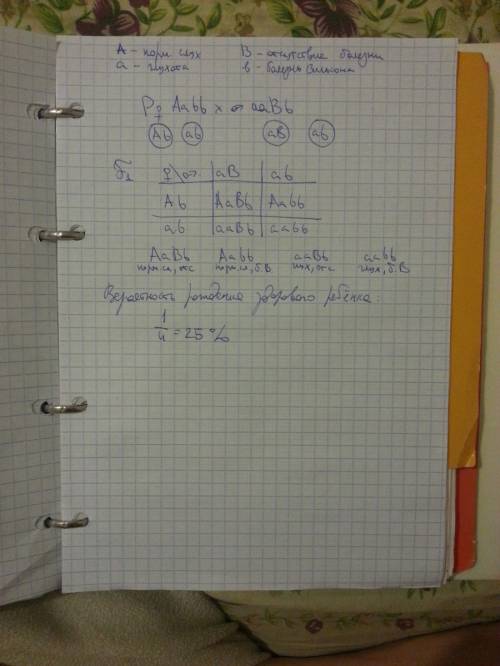 A - норм слух B - отсутствие болезни
a - глухота в - болезнь Вильсона
P ♀ Aabb x ♂ aaBb
Ab ab aB ab
F₁ ♀\♂ aB ab
Ab AaBb Aabb
ab aaBb aabb
AaBb Aabb aaBb aabb
норм.сл, отс норм.сл, б.В глух, отс глух, б.В
Вероятность рождения здорового ребёнка:
1/4 = 25%